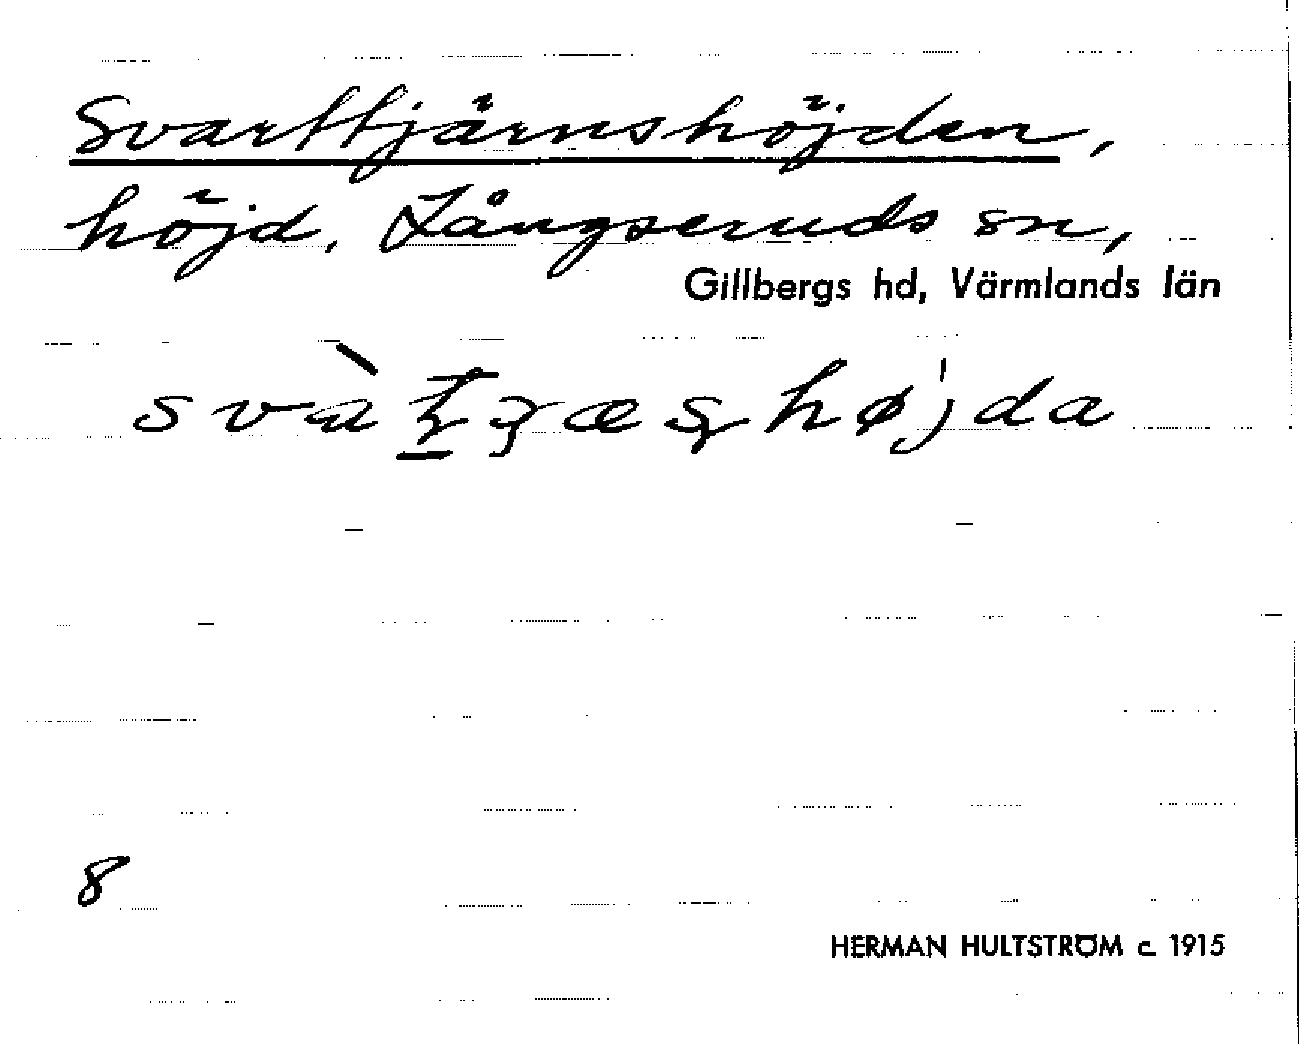 Svarttjärnshöjden,
höjd, Långseruds sn,
Gillbergs hd, Värmlands län
svàt̲ʒæʂhø̍jda
8
HERMAN HULTSTRÖM c. 1915